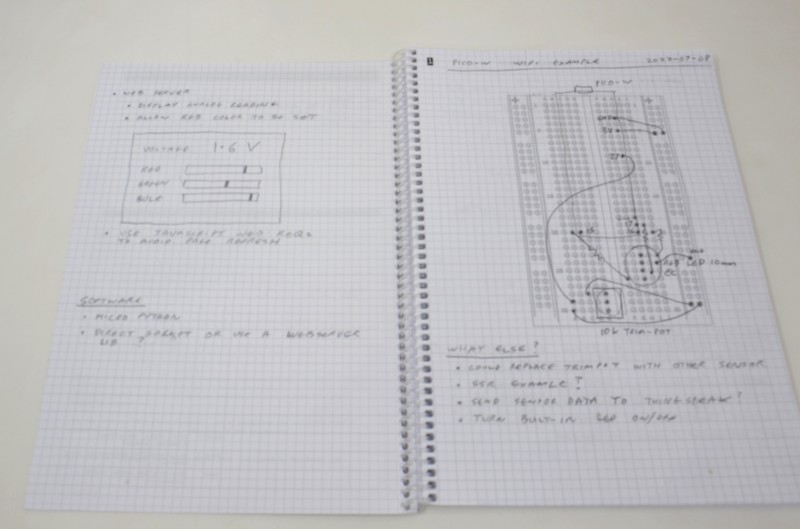 • WEB SERVER
• DISPLAY ANALOG READING
• ALLOW RGB COLOR TO BE SET
VOLTAGE 1.6 V
RED
GREEN
BULE
• USE JAVASCRIPT WEB REQS
TO AVOID PAGE REFRESH
SOFTWARE
• MICRO PYTHON
• DIRECT SOCKET OR USE A WEBSERVER
LIB ?
1 PICO-W WIFI EXAMPLE
PICO-W
GND
3V
RGB LED 10mm
CC
10K TRIM-POT
WHAT ELSE?
• COULD REPLACE TRIMPOT WITH OTHER SENSOR
• SSR EXAMPLE?
• SEND SENSOR DATA TO THINGSPEAK?
• TURN BUILT-IN LED ON/OFF